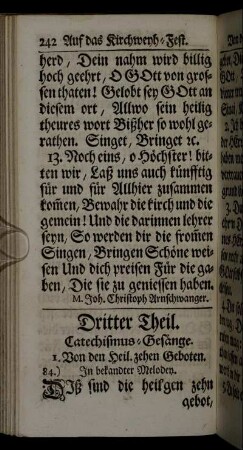 242 Auf das Kirchweyh-Fest.
herd, Dein nahm wird billig
hoch geehrt, O GOtt von gros-
sen thaten! Gelobt sey GOtt an
diesem ort, Allwo sein heilig
theures wort Bißher so wohl ge-
rathen. Singet, Bringet ꝛc.
13. Noch eins, o Höchster! bit-
ten wir, Laß uns auch künfftig
für und für Allhier zusammen
kom̃en, Bewahr die kirch und die
gemein! Und die darinnen lehrer
seyn, So werden dir die from̃en
Singen, Bringen Schöne wei-
sen Und dich preisen Für die ga-
ben, Die sie zu geniessen haben.
M. Joh. Christoph Arnschwanger.
Dritter Theil.
Catechismus-Gesänge.
1. Von den Heil. zehen Geboten.
84.) In bekandter Melodey.
Diß sind die heilgen zehn
gebot,